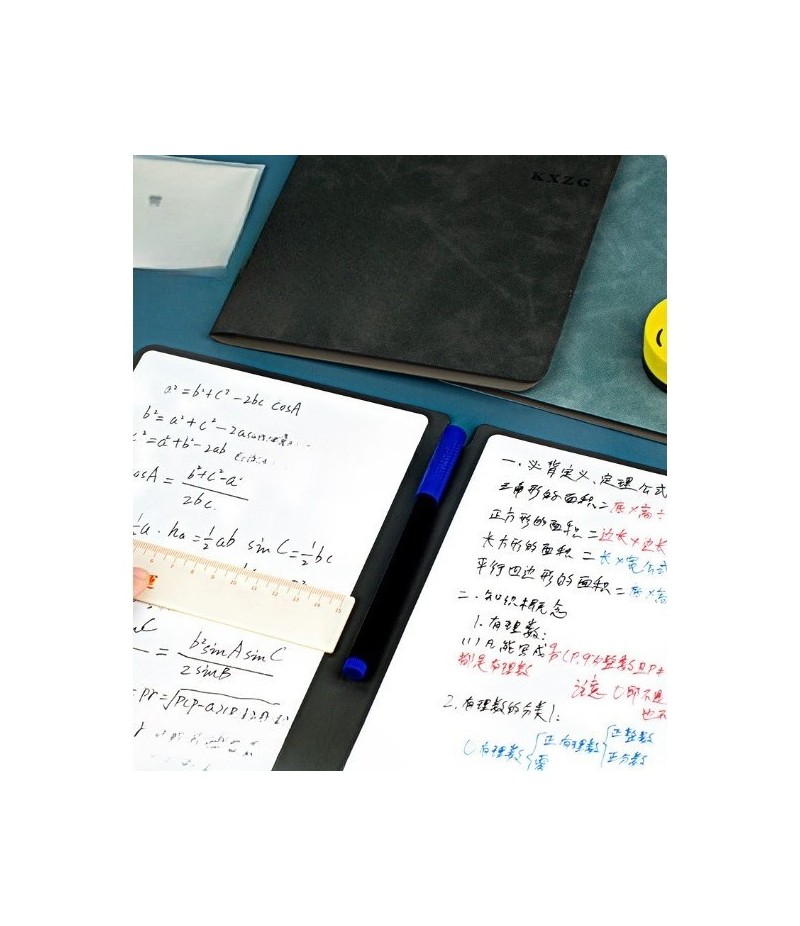 KXZG
a² = b² + c² - 2bc cosA
b² = a² + c² - 2a
c² = a² + b² - 2ab
osA = b² + c² - a² / 2bc
½a · ha = ½ab sin C = ½bc
= b² sinA sinC / 2 sinB
= pr = √p(p-a)
一. 必背定义、定理公式
三角形的面积 = 底×高÷
正方形的面积 = 边长×边长
长方形的面积 = 长×宽 公式
平行四边形的面积 = 底×高
二. 知识概念
1. 有理数:
(1) 凡能写成 (P, q为整数且P≠
都是有理数
注意 0即不是
也不
2. 有理数的分类1:
有理数 正有理数 正整数
正分数
零